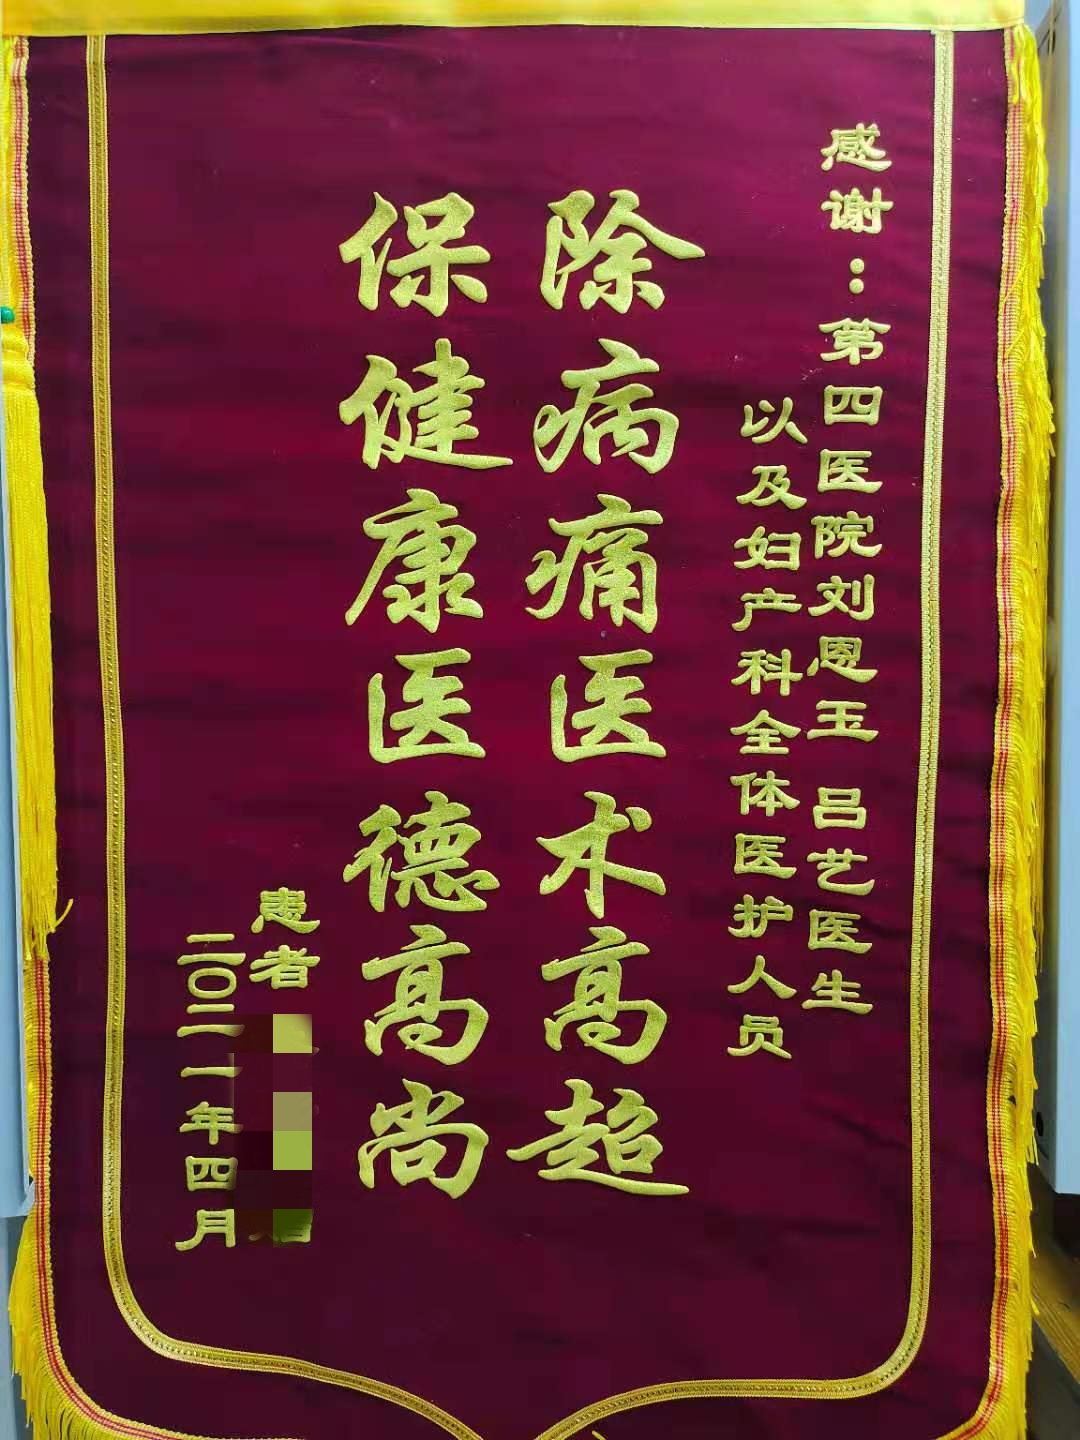 感谢：第四医院刘恩玉 吕艺医生
以及妇产科全体医护人员
除病痛医术高超
保健康医德高尚
患者
二〇二一年四月